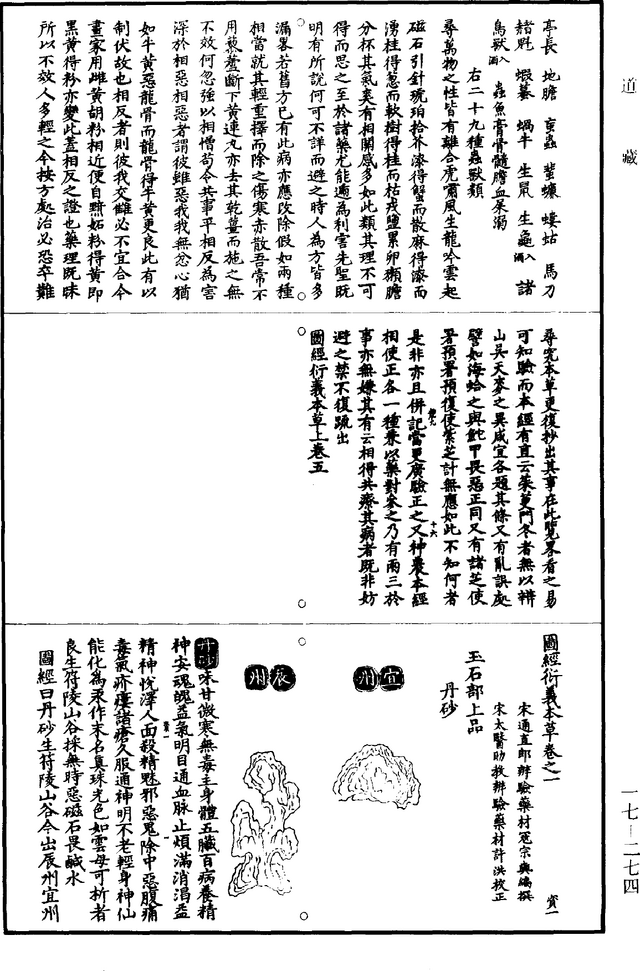 道藏
亭長　地膽　䖟蟲　蜚蠊　螻蛄　馬刀
赭魁　蝦蟇　蝸牛　生鼠　生龜入酒　諸
鳥獸入酒　蟲魚膏骨髓膽血屎溺
右二十九種蟲獸類
尋萬物之性皆有離合虎嘯風生龍吟雲起
磁石引針琥珀拾芥漆得蟹而散麻得漆而
湧桂得葱而軟樹得桂而枯戎鹽累卵獺膽
分杯其氣爽有相關感多如此類其理不可
得而思之至於諸藥尤能遞為利害先聖既
明有所說何可不詳而避之時人為方皆多
漏畧若舊方已有此病亦應改除假如兩種
相當就其輕重擇而除之傷寒赤散吾常不
用藜蘆斷下黄連丸亦去其乾薑而施之無
不效何忽強以相憎苟令共事乎相反為害
深於相惡相惡者謂彼雖惡我我無忿心猶
如牛黄惡龍骨而龍骨得牛黄更良此有以
制伏故也相反者則彼我交讎必不宜合今
畫家用雌黄胡粉相近便自黯妬粉得黄即
黑黄得粉亦變此蓋相反之證也藥理既昧
所以不效人多輕之今按方處治必恐卒難
尋究本草更復抄出其事在此覽畧看之易
可知驗而本經有直云茱萸門冬者無以辨
山吴天麥之異咸宜各題其條又有亂誤處
譬如海蛤之與鮀甲畏惡正同又有諸芝使
署預署預復使紫芝計無應如此不知何者
是非亦且併記當更廣驗正之又神農本經
相使正各一種兼以藥對參之乃有兩三於
事亦無嫌其有云相得共療其病者既非妨
避之禁不復疏出
圖經衍義本草上卷五
圖經衍義本草卷之一　寳一
宋通直郎辨驗藥材寇宗奭編撰
宋太醫助教辨驗藥材許洪校正
玉石部上品
丹砂
宜州
辰州
丹砂味甘微寒無毒主身體五臟百病養精
神安魂魄益氣明目通血脉止煩滿消渴益
精神悅澤人面殺精魅邪惡鬼除中惡腹痛
毒氣疥瘻諸瘡久服通神明不老輕身神仙
能化為汞作末名真珠光色如雲母可析者
良生符陵山谷採無時惡磁石畏鹹水
圖經曰丹砂生符陵山谷今出辰州宜州
一七—二七四